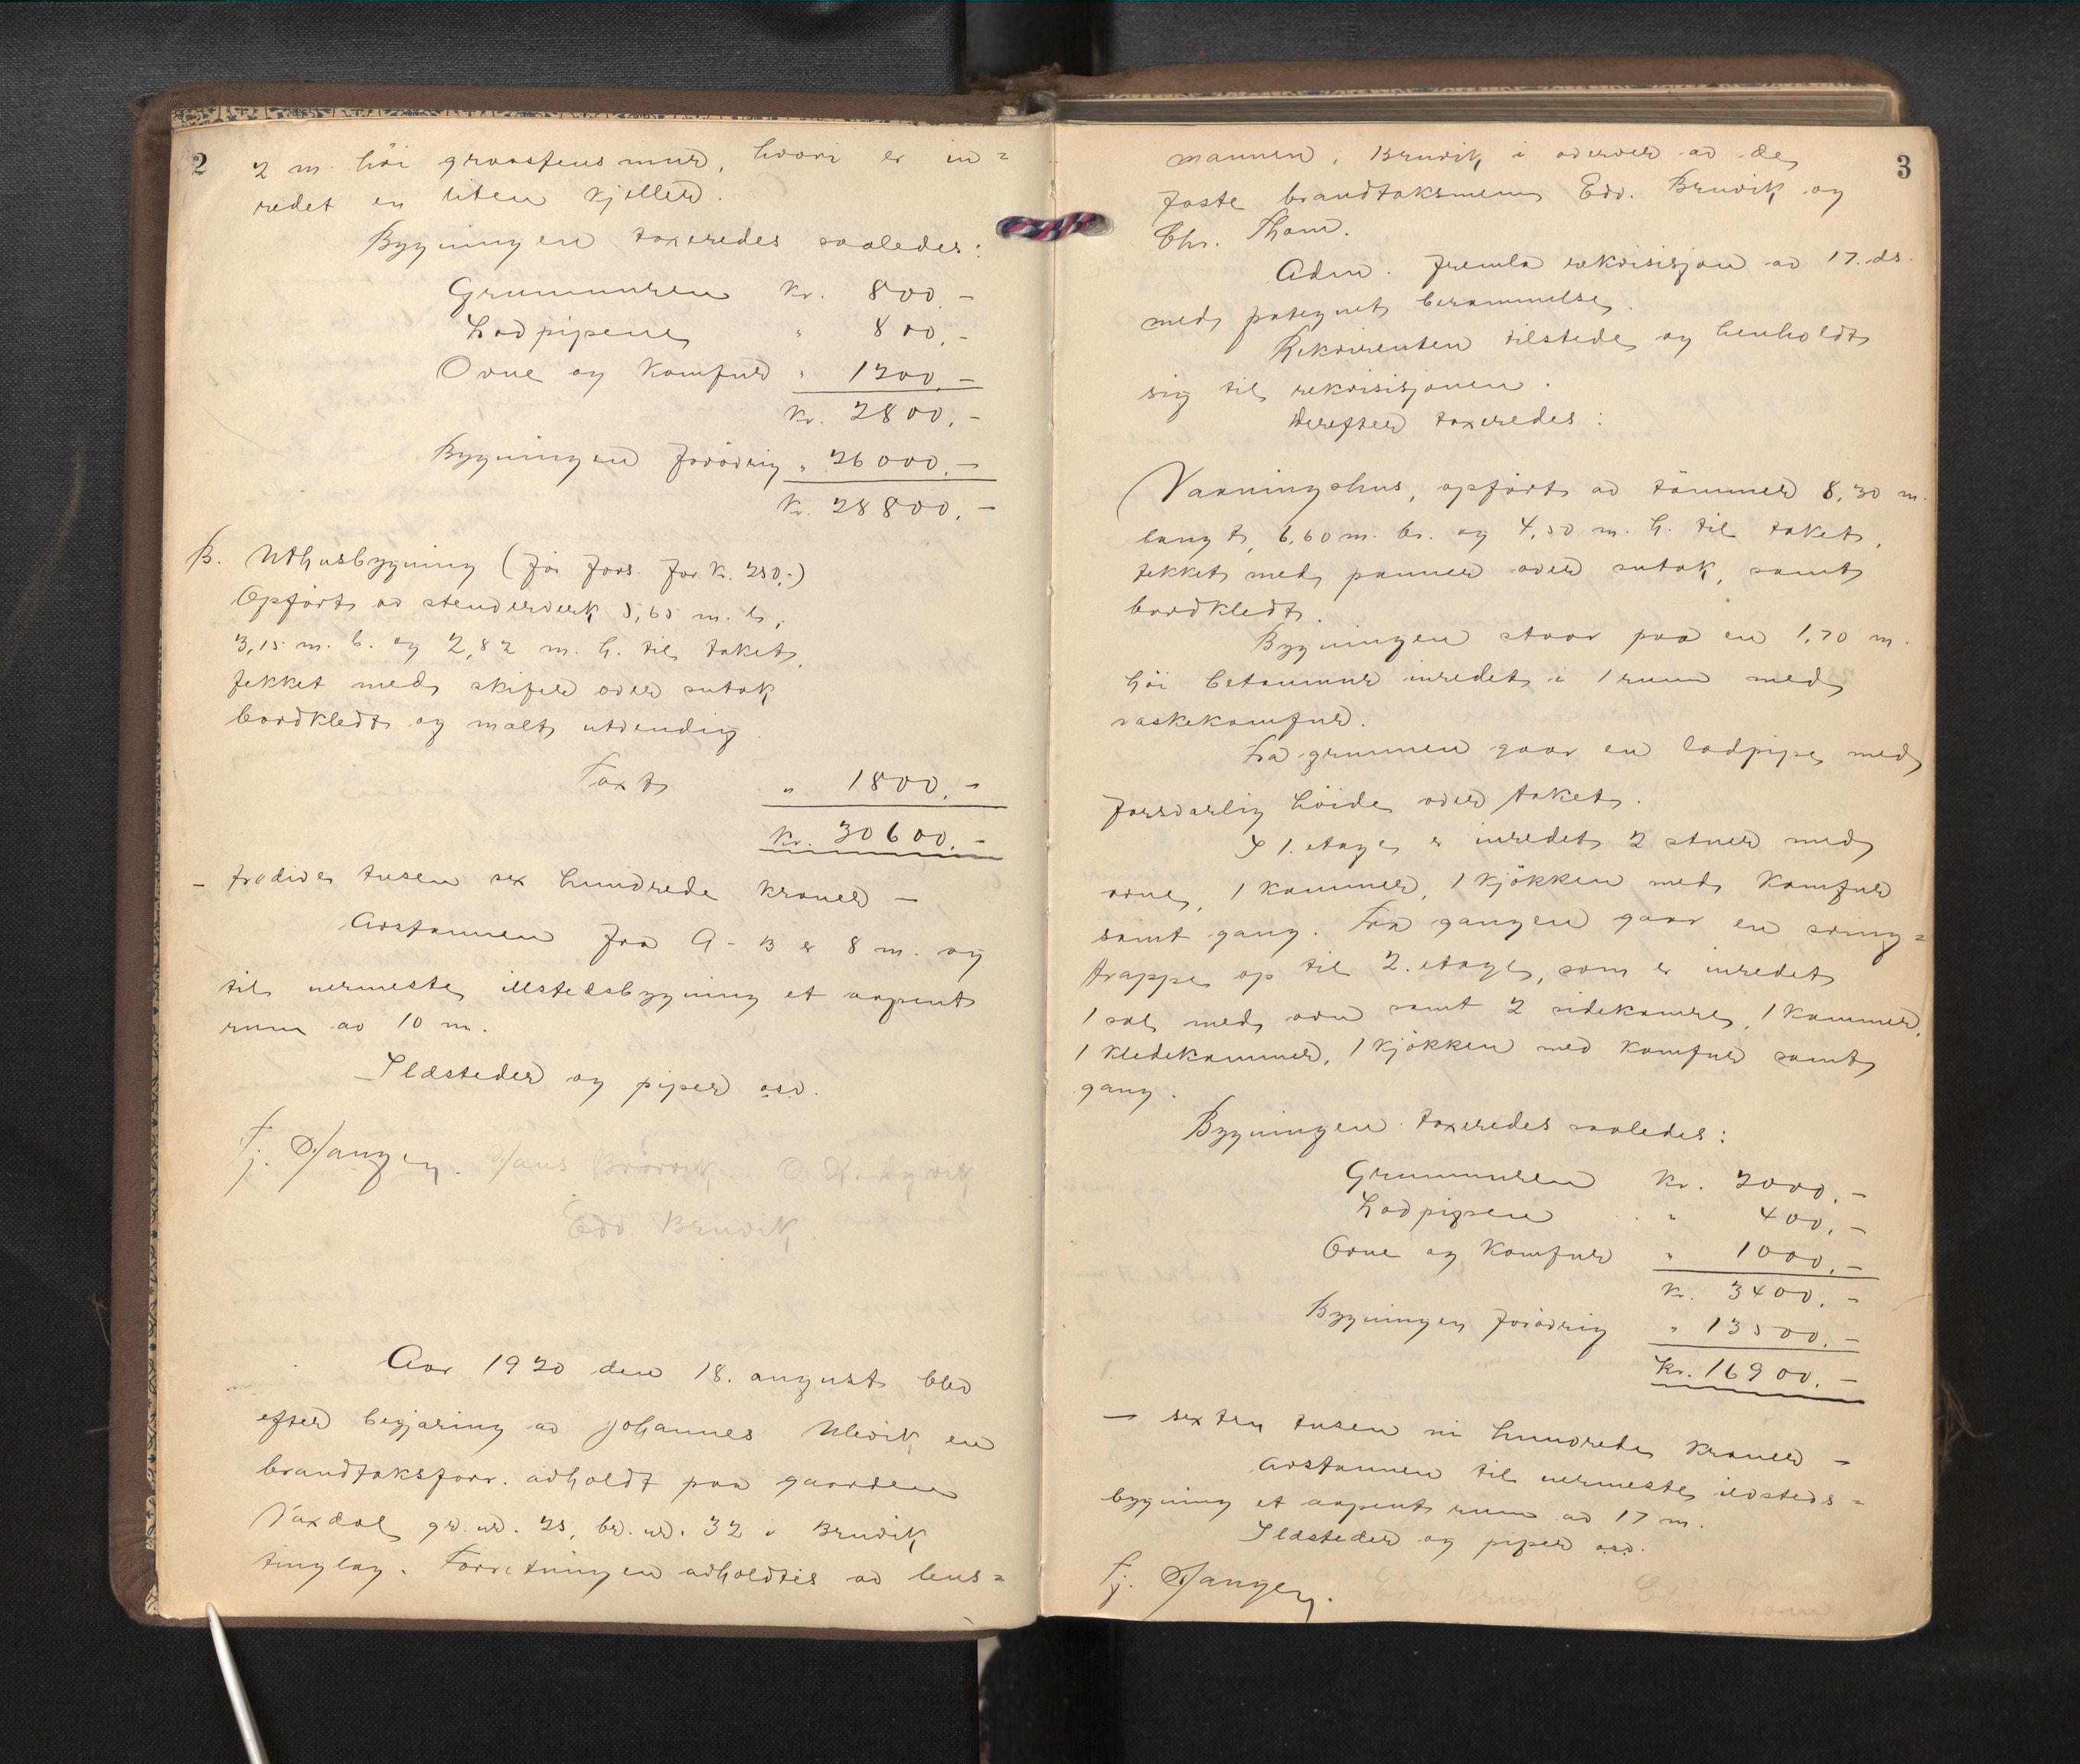 2
2 m. höi graastensmur, hvori er in=
redet en liten kjeller.
Bygningen taxeredes saaledes:
Grunnmuren kr. 800.-
Lodpipene " 800.-
Ovne og Komfur " 1200.-
kr. 2800.-
Bygningen forövrig " 26000.-
kr. 28800.-
B. Uthusbygning (för fors. for k. 250.-)
Opfört av stenderverk 5,65 m. l.,
3,15 m. b. og 2,82 m. h. til taket,
tekket med skifer over sutak
bordkledt og malt utvendig.
Taxt " 1800.-
kr. 30600.-
- tredive tusen sex hundrede kroner -
Avstannen fra A - B er 8 m. og
til nermeste illstedsbygning et aapent
rum av 10 m.
Ildsteder og piper osv.
Fj. Stanger. Hans Brörvik O. K. Dyvik
Edv. Bruvik.
Aar 1920 den 18. august blev
efter begjæring av Johannes Ulevik en
brandtaksforr. avholdt paa gaarden
Vaxdal gr. nr. 25, br. nr. 32 i Bruvik
tinglag. Forretningen avholdtes av lens=
3
mannen i Bruvik i overvær av de
faste brandtaksmenn Edv. Bruvik og
Chr. Tham.
Adm. fremla rekvisisjon av 17. ds.
med paategnet berammelse.
Rekvirenten tilstede og henholdt
sig til rekvisisjonen.
Derefter taxeredes:
Vaaningshus, opfört av tömmer 8,30 m.
langt, 6,60 m. br. og 4,50 m. h. til taket,
tekket med panner over sutak, samt
bordkledt.
Bygningen staar paa en 1,70 m.
höi betonmur inredet i 1 rum med
vaskekomfur.
Fra grunnen gaar en lodpipe med
forsvarlig höide over taket.
I 1. etage er inredet 2 stuer med
ovne, 1 kammer, 1 kjökken med komfur
samt gang. Fra gangen gaar en sving=
trappe op til 2. etage, som er inredet
1 sal med ovn samt 2 sidekamre, 1 kammer,
1 kledekammer, 1 kjökken med komfur samt
gang.
Bygningen taxeredes saaledes:
Grunnmuren kr. 2000.-
Lodpipen " 400.-
Ovne og Komfur " 1000.-
kr. 3400.-
Bygningen forövrig " 13500.-
kr. 16900.-
- sexten tusen ni hundrede kroner -
Avstannen til nermeste ildsteds=
bygning et aapent rum av 17 m.
Ildsteder og piper osv.
Fj. Stanger. Edv Bruvik. Chr Tham